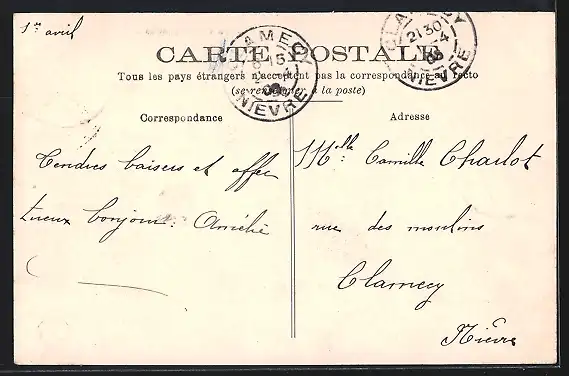 1er avril
CLAMECY
NIEVRE
CLAMECY
21 30
NIEVRE
CARTE POSTALE
Tous les pays étrangers n'acceptent pas la correspondance au recto
(se renseigner à la poste)
Correspondance
Tendres baisers et affec
tueux bonjour. Amélie
Adresse
Mlle: Camille Charlot
rue des moulins
Clamecy
Nièvre